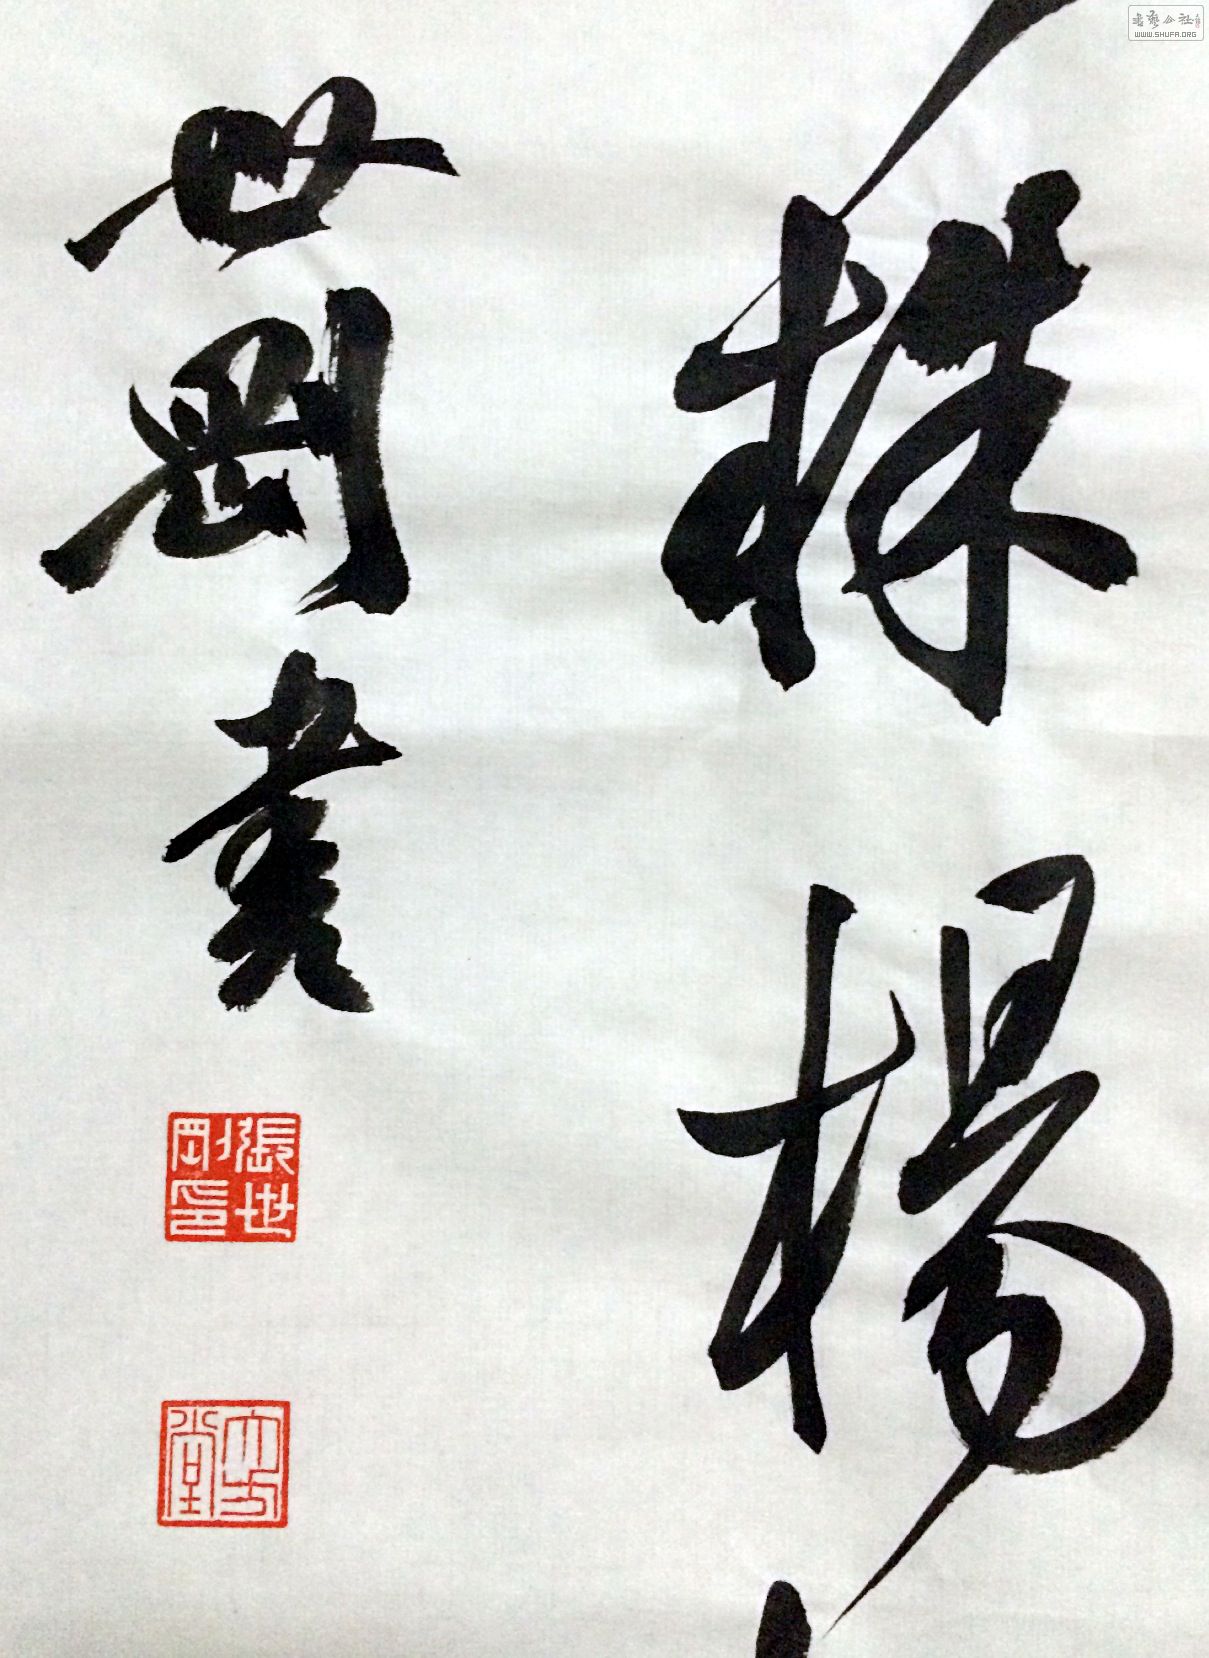 株楊
世剛書
張世剛印
大方堂
書藝公社
WWW.SHUFA.ORG